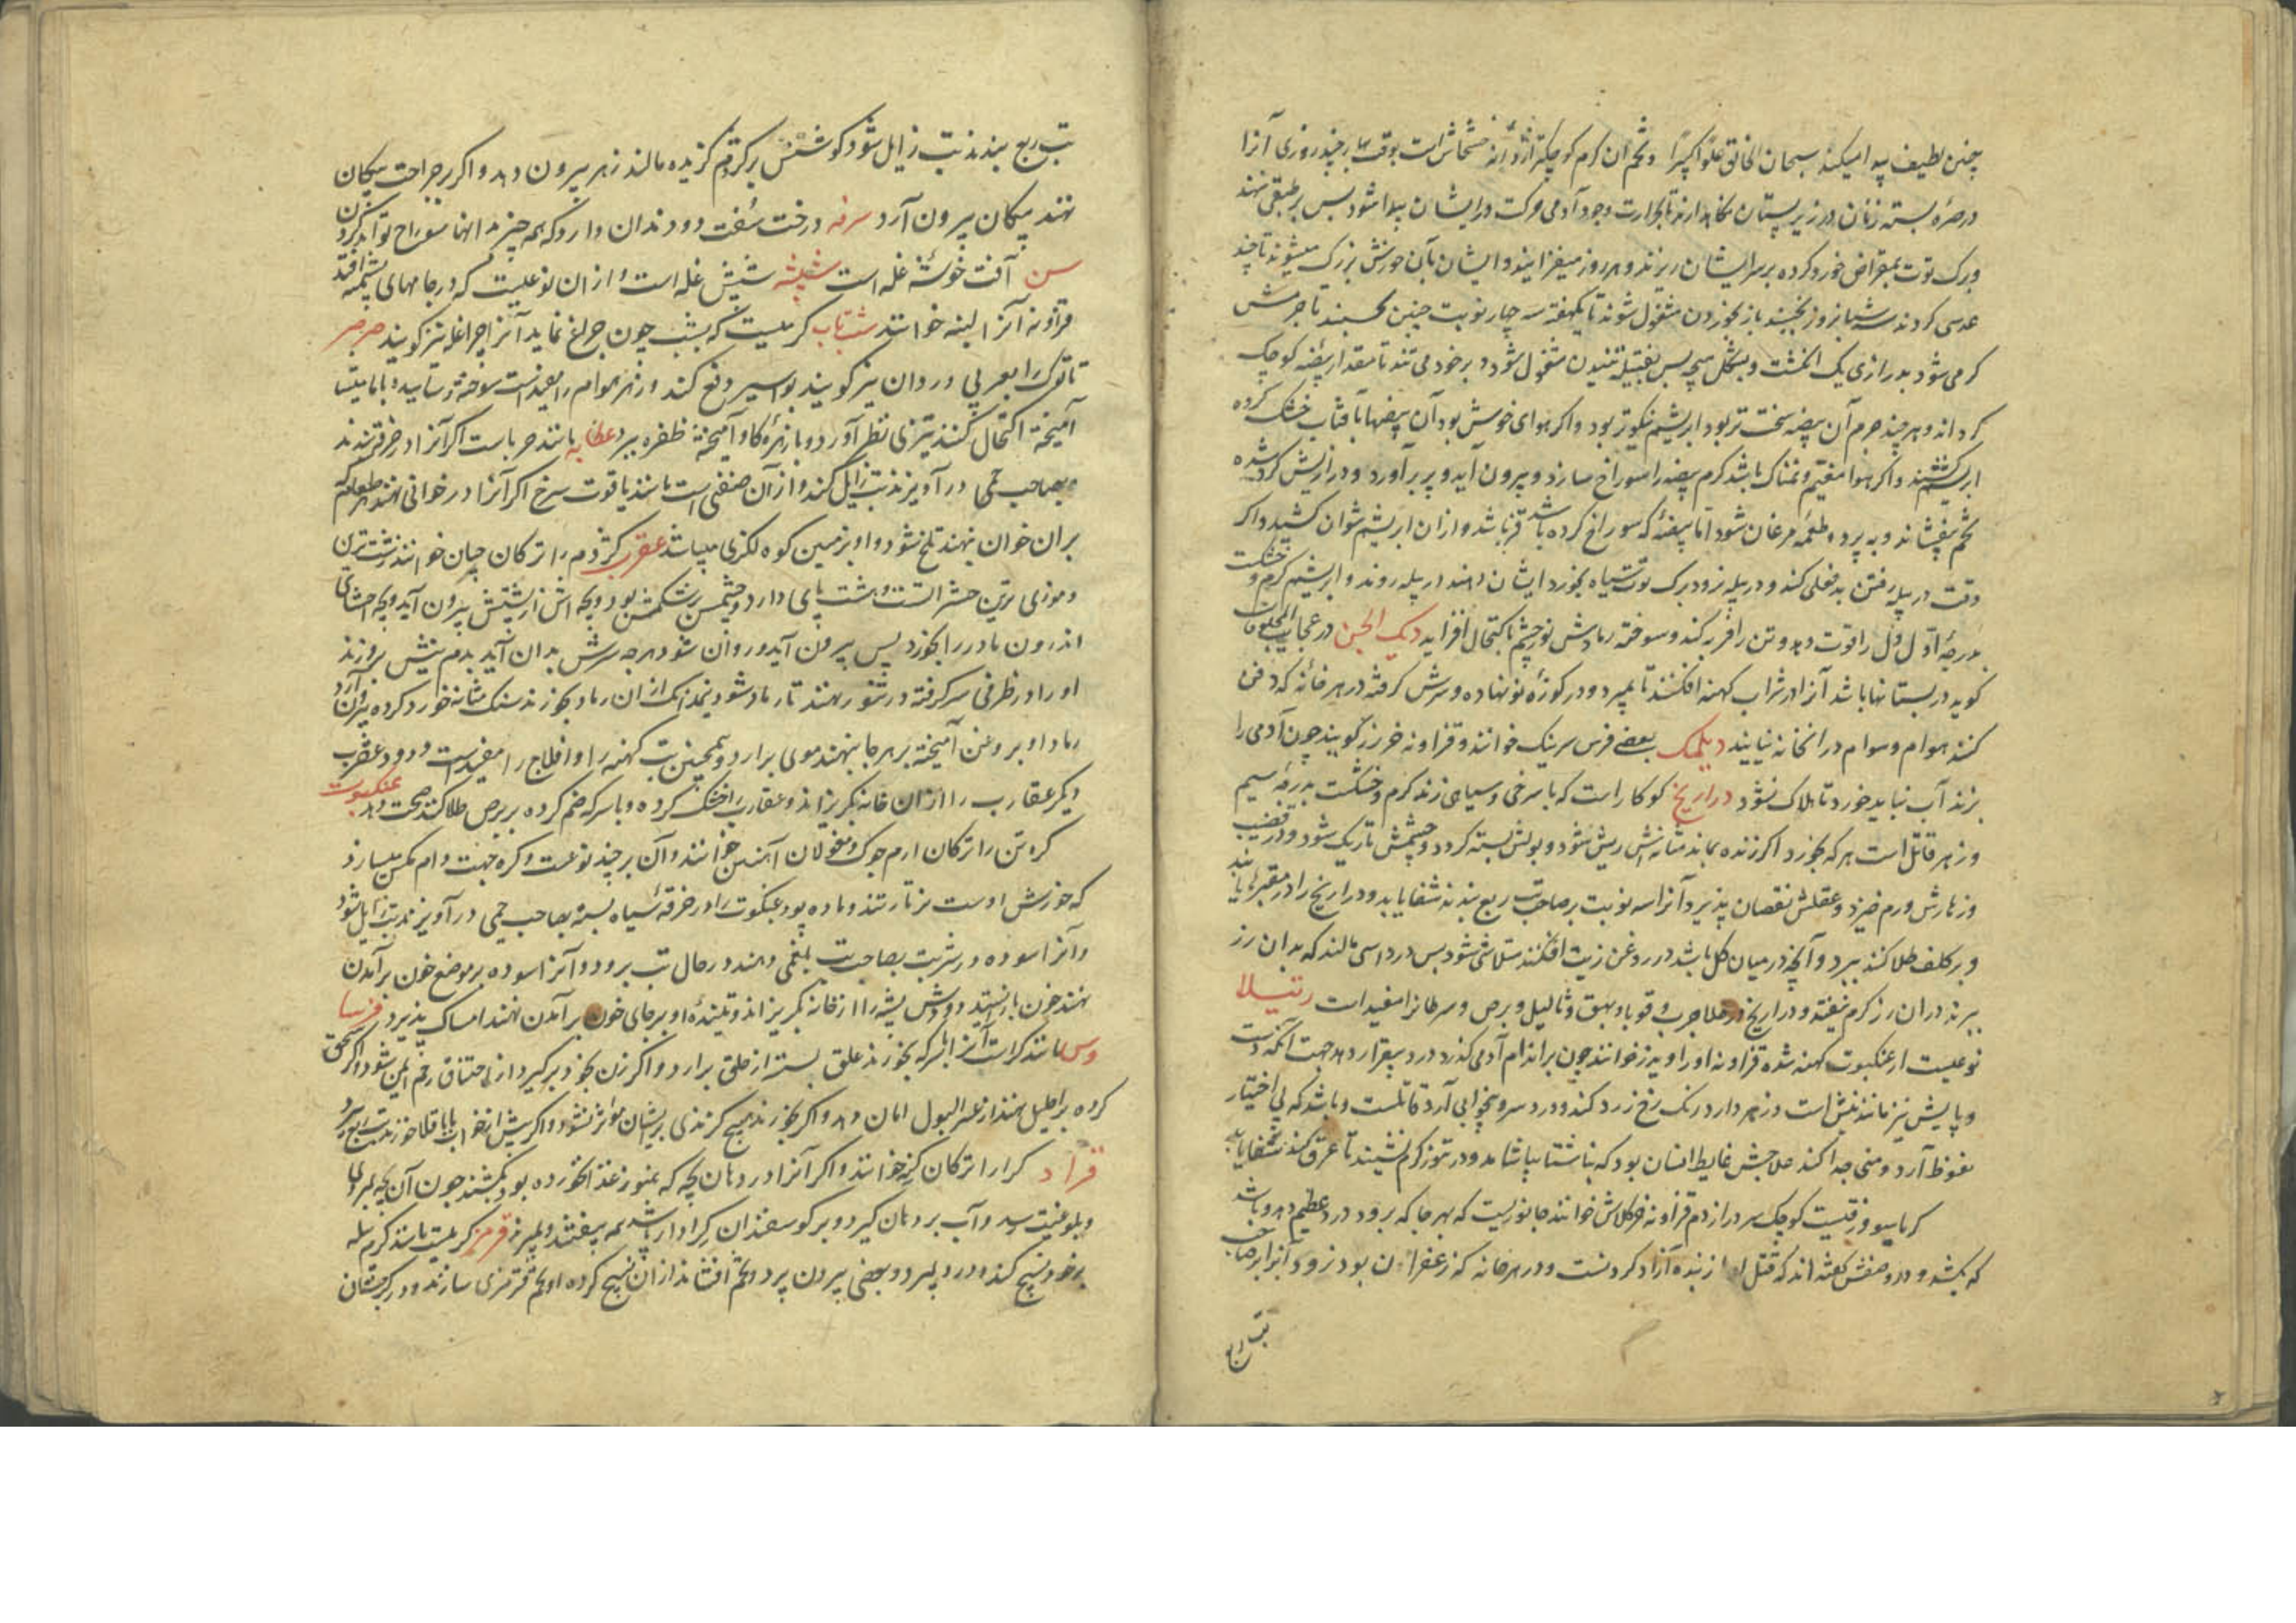 چنین لطیف پیدا میکند سبحان الخالق علوا کبیرا و تخم آن کرم کوچکتر از دانه خشخاش است بوقت بهار چند روزی آنرا
در صره بسته زنان در زیر پستان نگاه دارند تا بحرارت وجود آدمی حرکت در ایشان پیدا شود پس بر طبقی نهند
و برک توت بمقراض خورد کرده بر سر ایشان ریزند و هر روز میفزایند و ایشان بآن خورش بزرک میشوند تا چند
عدسی کردند سه شبانروز بخسبند باز بخوردن مشغول شوند تا یکهفته سه چهار نوبت چنین بخسبند تا جرمش
کرمی شود بدرازی یک انکشت و بشکل پس بفتیله تنیدن مشغول شود و بر خود می تند تا مقدار بیضه کوچک
کرداند و هر چند جرم آن بیضه سخت تر بود ابریشم نیکوتر بود و اکر هوای خوش بود آن بیضها بآفتاب خشک کرده
ابریشم کشند و اکر هوا مغیم و نمناک باشد کرم بیضه را سوراخ سازد و بیرون آید و پر بر آورد و درازیش کرد شده
تخم بیفشاند و به پرد و طعمه مرغان شود اما بیضه که سوراخ کرده باشد قز باشد و از آن ابریشم نتوان کشید و اکر
وقت در پیله رفتن بد فعلی کند و در پیله نرود برک توت سیاه بخورد ایشان دهند در پیله روند و ابریشم کرم و خشکست
بدرجه اول دل را قوت دهد و تن را فربه کند و سوخته رمادش نور چشم باکتحال افزاید دیک الجن در عجایب المخلوقات
کوید در بستانها باشد آنرا در شراب کهنه افکنند تا بمیرد و در کوزه نو نهاده و سرش کرفته در هر خانه که دفن
کنند هوام و سوام در انخانه نیایند دیلمک بعضی فرس سرینک خوانند و قزاونه خرزز کویند چون آدمی را
بزند آب نباید خورد تا هلاک نشود دراریح کوکار است که با سرخی و سیاهی زند کرم و خشکست بدرجه سیم
و زهر قاتل است هر که بخورد اکر زنده بماند مثانه اش ریش شود و بولش بسته کردد و چشمش تاریک شود و در قضیب
و زهارش ورم خیزد و عقلش نقصان پذیرد آنرا سه نوبت بر صاحب تب ربع بندند شفا یابد و دراریح را در مقبرها یابند
و بر کلف طلا کنند ببرد و آنچه در میان کل باشد در روغن زیت افکنند متلاشی شود پس در داسی مالند که بدان رز
ببرند در ان رز کرم نیفتد و دراریح در طلا جرب و قوبا و بهق و ثآلیل و برص و سرطانرا مفید است رتیلا
نوعیست از عنکبوت کهنه شده قزاونه او را ویرز خوانند چون بر اندام آدمی کذرد درد بیقرار دهد جهت آنکه دست
و پایش نیز مانند نیش است و زهر دارد رنک رخ زرد کند و درد سر و بیخوابی آرد قاتلست و باشد که بی اختیار
نعوظ آرد و منی جدا کند علاجش غایط انسان بود که بناشتا بیاشامد و در تنور کرم نشیند تا عرق کند شفا یابد
کوچک سر دراز دم قزاونه خرکلاش خوانند جانوریست که بهر جا که برود درد عظیم دهد و باشد
که بکشد و در وصفش کفته اند که قتل او از بنده آزاد کردنست و در هر خانه که زعفران بود نرود و آنرا بر صاحب
تب ربع
تب ربع بندند تب زایل شود کوشتش بر کژدم کزیده مالند زهر بیرون دهد و اکر بر جراحت پیکان
نهند پیکان بیرون آرد سرفه درخت سُفت دو دندان دارد که همه چیز بد انها سوراخ تواند کردن
سن آفت خوشه غله است شپشه شپش غله است و از ان نوعیست که در جامهای پشمینه افتد
قزاونه آنرا لبنه خوانند شب تاب کرمیست که بشب چون چراغ نماید آنرا چراغله نیز کویند صرصر
تا ترک را بعربی وردان نیز کویند بواسیر دفع کند و زهر هوام را مفیدست سوخته و ساییده با مامیثا
آمیخته اکتحال کنند تیزی نظر آورد و با زهره کاو آمیخته ظفره ببرد عظایه مانند حرباست اکر آنرا در خرقه بندند
و بصاحب حمی در آویزند تب زایل کند و از آن صنفی است مانند یاقوت سرخ اکر آنرا در خوانی نهند هر طعام که
بر ان خوان بنهند تلخ نشود و او بزمین کوه لکزی میباشد عقرب کژدم را ترکان چیان خوانند زشت ترین
و موذی ترین حشراتست و هشت پای دارد و چشمش بر شکمش بود و بچه اش از پشتش بیرون آید و بچه احشای
اندرون مادر را بخورد پس بیرون آید و روان شود هر چه سرش بدان آید بدم نیش بروزند
او را در ظرفی سر کرفته در تنور نهند تا رماد شود نیم دانک از ان رماد بخورند سنک مثانه خورد کرده بیرون آرد
رماد او بروغن آمیخته بر هر جا بنهند موی برارد و همچنین تب کهنه را و افلاج را مفیدست و دود عقرب
دیکر عقارب را از ان خانه بکریزاند و عقارب را خشک کرده و با سرکه ضم کرده بر برص طلا کنند صحت دهد عنکبوت
کره تن را ترکان ارم جوک و مغولان آهنین خوانند و آن بر چند نوعست و کره جهت دام مکس میسازد
که خورش اوست نر تار تند و ماده پود عنکبوت را در خرقه سیاه بسته بصاحب حمی در آویزند تب زایل شود
و آنرا سوده در شربت بصاحب تب بلغمی دهند در حال تب برود و آنرا سوده بر موضع خون برآمدن
نهند خون باز ایستد و دودش پشه را از خانه بکریزاند و تنیده او بر جای خون برآمدن نهند امساک پذیرد فرسا
وس مانند کراست آنرا با سرکه بخورند علق بسته از حلق برارد و اکر زن بخود بر کیرد از اختناق رحم ایمن شود و اکر سحق
کرده بر احلیل نهند از عسر البول امان دهد و اکر بخورند هیچ کزندی بریشان مؤثر نشود و اکر پیش از نواب با باقلا خورند تب ربع ببرد
قراد کرا را ترکان کنه خوانند و اکر آنرا در دهان بچه که هنوز غذا نخورده بود بکشند چون آن بچه بمردی
و بلوغیت رسد و آب بر دهان کیرد و بر کوسفندان کرا دار پاشد همه بیفتند و بمیرند قرمز کرمیست مانند کرم پیله
بر خود نسیج کند و درو بمیرد و بعضی بیرون پرد و تخم افشاند از ان نسیج کرده او تخم قرمزی سازند و در کرجستان